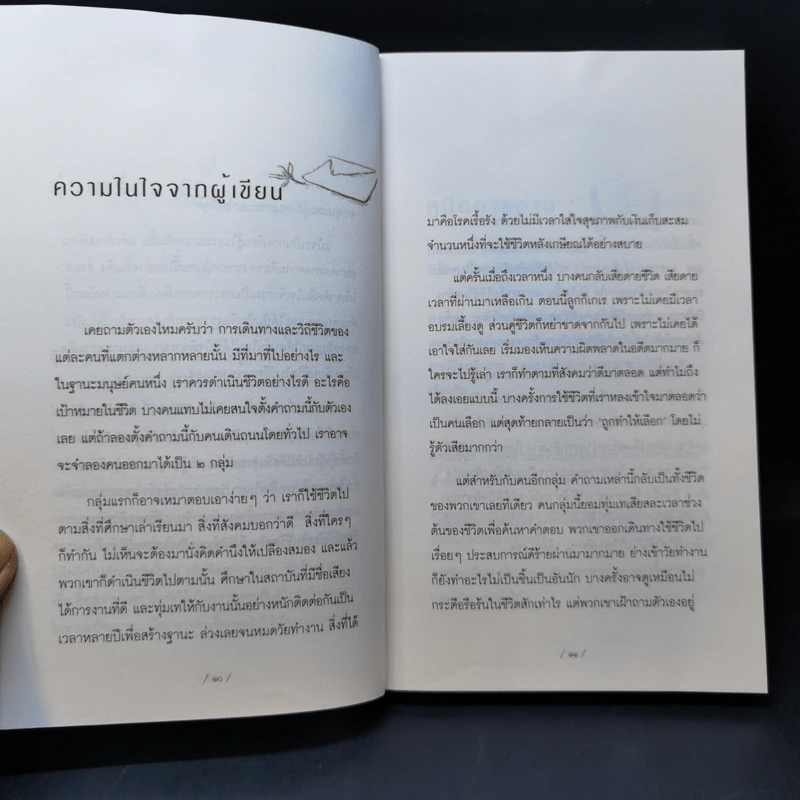 ความในใจจากผู้เขียน
เคยถามตัวเองไหมครับว่า การเดินทางและวิถีชีวิตของ
แต่ละคนที่แตกต่างหลากหลายนั้น มีที่มาที่ไปอย่างไร และ
ในฐานะมนุษย์คนหนึ่ง เราควรดำเนินชีวิตอย่างไรดี อะไรคือ
เป้าหมายในชีวิต บางคนแทบไม่เคยสนใจตั้งคำถามนี้กับตัวเอง
เลย แต่ถ้าลองตั้งคำถามนี้กับคนเดินถนนโดยทั่วไป เราอาจ
จะจำลองคนออกมาได้เป็น ๒ กลุ่ม
กลุ่มแรกก็อาจเหมาตอบเอาง่ายๆ ว่า เราก็ใช้ชีวิตไป
ตามสิ่งที่ศึกษาเล่าเรียนมา สิ่งที่สังคมบอกว่าดี สิ่งที่ใครๆ
ก็ทำกัน ไม่เห็นจะต้องมานั่งคิดคำนึงให้เปลืองสมอง และแล้ว
พวกเขาก็ดำเนินชีวิตไปตามนั้น ศึกษาในสถาบันที่มีชื่อเสียง
ได้การงานที่ดี และทุ่มเทให้กับงานนั้นอย่างหนักติดต่อกันเป็น
เวลาหลายปีเพื่อสร้างฐานะ ล่วงเลยจนหมดวัยทำงาน สิ่งที่ได้
/ ๑๐ /
มาคือโรคเรื้อรัง ด้วยไม่มีเวลาใส่ใจสุขภาพกับเงินเก็บสะสม
จำนวนหนึ่งที่จะใช้ชีวิตหลังเกษียณได้อย่างสบาย
แต่ครั้นเมื่อถึงเวลาหนึ่ง บางคนกลับเสียดายชีวิต เสียดาย
เวลาที่ผ่านมาเหลือเกิน ตอนนี้ลูกก็เกเร เพราะไม่เคยมีเวลา
อบรมเลี้ยงดู ส่วนคู่ชีวิตก็หย่าขาดจากกันไป เพราะไม่เคยได้
เอาใจใส่กันเลย เริ่มมองเห็นความผิดพลาดในอดีตมากมาย ก็
ใครจะไปรู้เล่า เราก็ทำตามที่สังคมว่าดีมาตลอด แต่ทำไมถึง
ได้ลงเอยแบบนี้ บางครั้งการใช้ชีวิตที่เราหลงเข้าใจมาตลอดว่า
เป็นคนเลือก แต่สุดท้ายกลายเป็นว่า 'ถูกทำให้เลือก' โดยไม่
รู้ตัวเสียมากกว่า
แต่สำหรับกับคนอีกกลุ่ม คำถามเหล่านี้กลับเป็นทั้งชีวิต
ของพวกเขาเลยทีเดียว คนกลุ่มนี้ยอมทุ่มเทเสียสละเวลาช่วง
ต้นของชีวิตเพื่อค้นหาคำตอบ พวกเขาออกเดินทางใช้ชีวิตไป
เรื่อยๆ ประสบการณ์ดีร้ายผ่านมามากมาย ย่างเข้าวัยทำงาน
ก็ยังทำอะไรไม่เป็นชิ้นเป็นอันนัก บางครั้งอาจดูเหมือนไม่
กระตือรือร้นในชีวิตสักเท่าไร แต่พวกเขาเฝ้าถามตัวเองอยู่
/ ๑๑ /